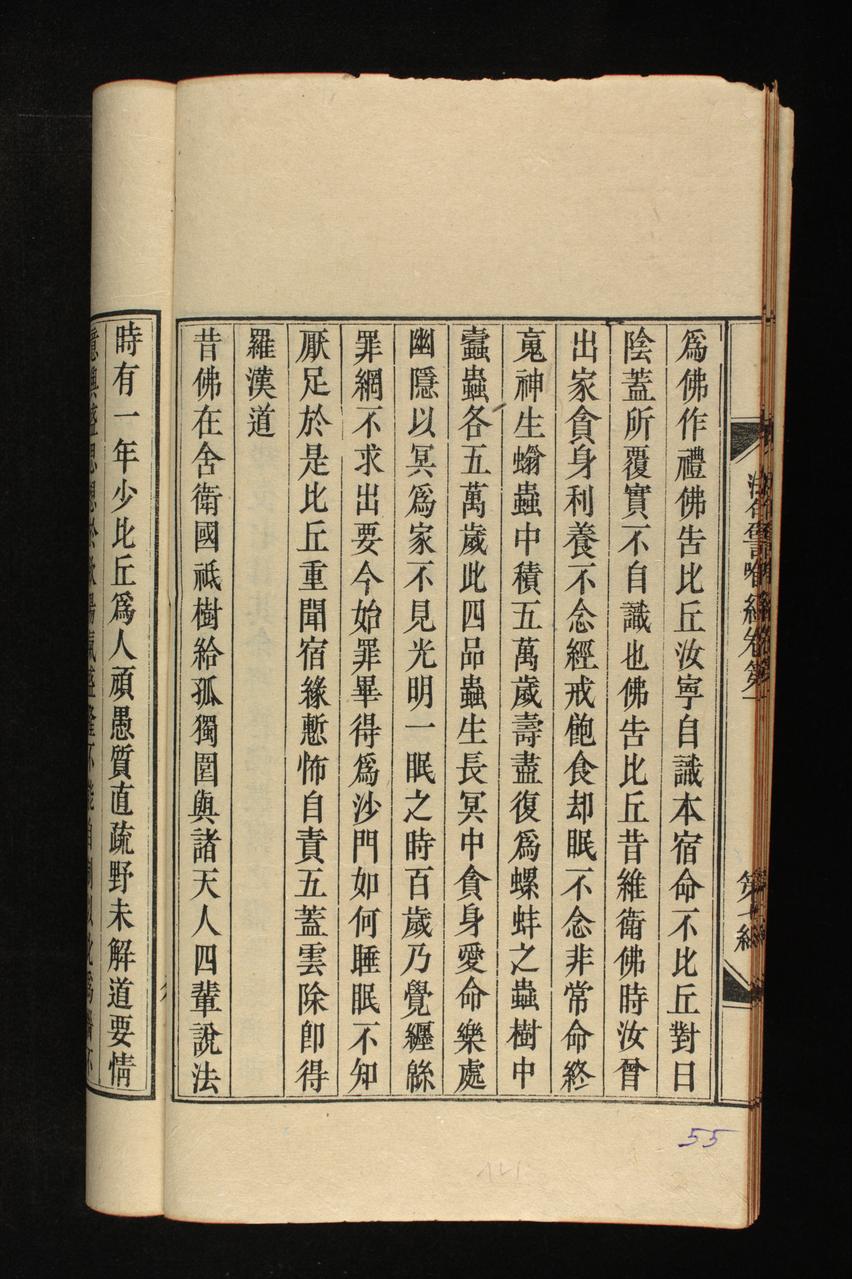 法句譬喻經卷第一
爲佛作禮佛告比丘汝寧自識本宿命不比丘對曰
陰蓋所覆實不自識也佛告比丘昔維衛佛時汝曾
出家貪身利養不念經戒飽食却眠不念非常命終
䰟神生螉蟲中積五萬歲壽盡復爲螺蚌之蟲樹中
蠹蟲各五萬歲此四品蟲生長冥中貪身愛命樂處
幽隱以冥爲家不見光明一眠之時百歲乃覺纏緜
罪網不求出要今始罪畢得爲沙門如何睡眠不知
厭足於是比丘重聞宿緣慙怖自責五蓋雲除即得
羅漢道
昔佛在舍衛國祇樹給孤獨園與諸天人四輩說法
時有一年少比丘爲人頑愚質直疏野未解道要情
55